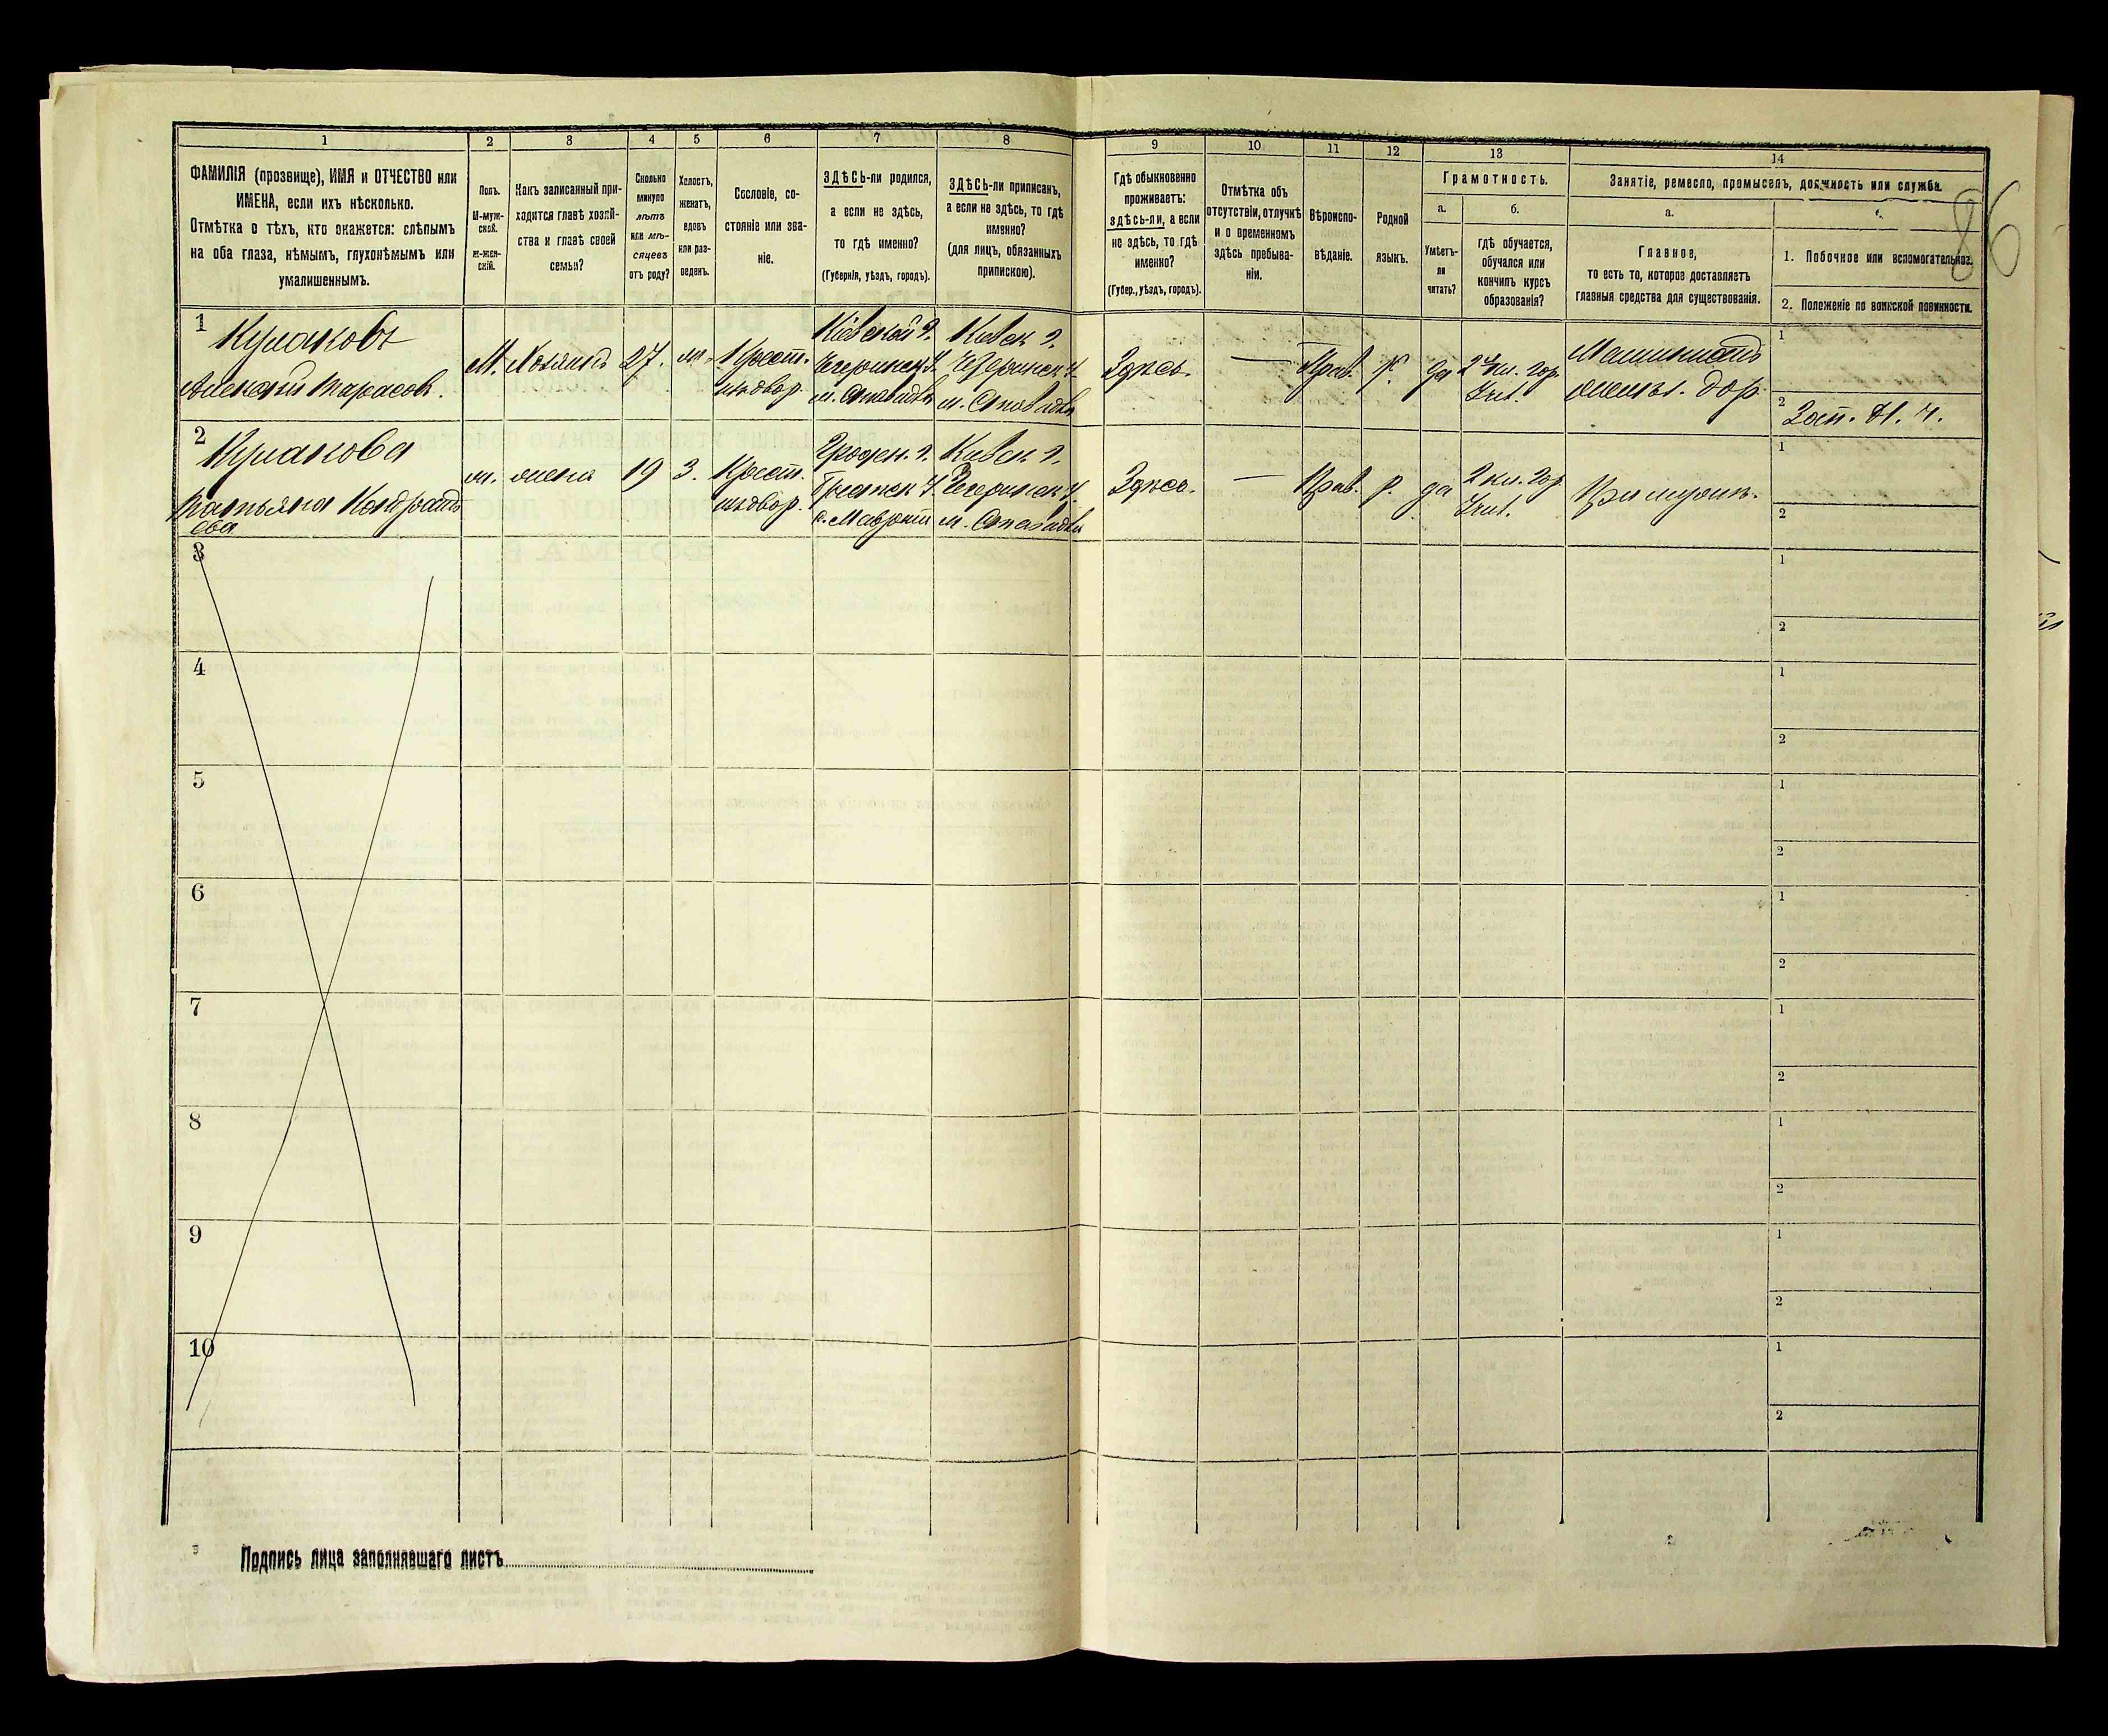 1
ФАМИЛІЯ (прозвище), ИМЯ и ОТЧЕСТВО или
ИМЕНА, если ихъ нѣсколько.
Отмѣтка о тѣхъ, кто окажется: слѣпымъ
на оба глаза, нѣмымъ, глухонѣмымъ или
умалишеннымъ.
2
Полъ.
М-муж-
ской.
Ж-жен-
скій.
3
Какъ записанный при-
ходится главѣ хозяй-
ства и главѣ своей
семьи?
4
Сколько
минуло
лѣтъ
или мѣ-
сяцевъ
отъ роду?
5
Холостъ,
женатъ,
вдовъ
или раз-
веденъ.
6
Сословіе, со-
стояніе или зва-
ніе.
7
ЗДѢСЬ-ли родился,
а если не здѣсь,
то гдѣ именно?
(Губернія, уѣздъ, городъ).
8
ЗДѢСЬ-ли приписанъ,
а если не здѣсь, то гдѣ
именно?
(для лицъ, обязанныхъ
припискою).
9
Гдѣ обыкновенно
проживаетъ:
здѣсь-ли, а если
не здѣсь, то гдѣ
именно?
(Губер., уѣздъ, городъ).
10
Отмѣтка объ
отсутствіи, отлучкѣ
и о временномъ
здѣсь пребыва-
ніи.
11
Вѣроиспо-
вѣданіе.
12
Родной
языкъ.
13
Грамотность.
а.
Умѣетъ-
ли
читать?
б.
гдѣ обучается,
обучался или
кончилъ курсъ
образованія?
14
Занятіе, ремесло, промыселъ, должность или служба.
а.
Главное,
то есть то, которое доставляетъ
главныя средства для существованія.
1. Побочное или вспомогательное.
2. Положеніе по воинской повинности.
86
1
Кулаковъ
Алексѣй Тарасов.
М. Хозяинъ 27.
Крест.
Кіевской г.
Чегеринск у.
Кіевск г.
Чегеринск у.
Здѣсь.
—
Прав. р. да
2 кл. гор.
Учил.
Машинистъ
желѣз. дор.
1
2
Зап. Н. Ч.
2
Кулакова
Татьяна Кондрать
ева
жена 19 З.
Крест.
Гроден. г.
Кіевск г.
Чегеринск у.
Здѣсь.
—
Прав. р. да
2 кл. гор
Учил.
При мужѣ.
1
2
3
1
2
4
1
2
5
1
2
6
1
2
7
1
2
8
1
2
9
1
2
10
1
2
Подпись лица заполнявшаго листъ